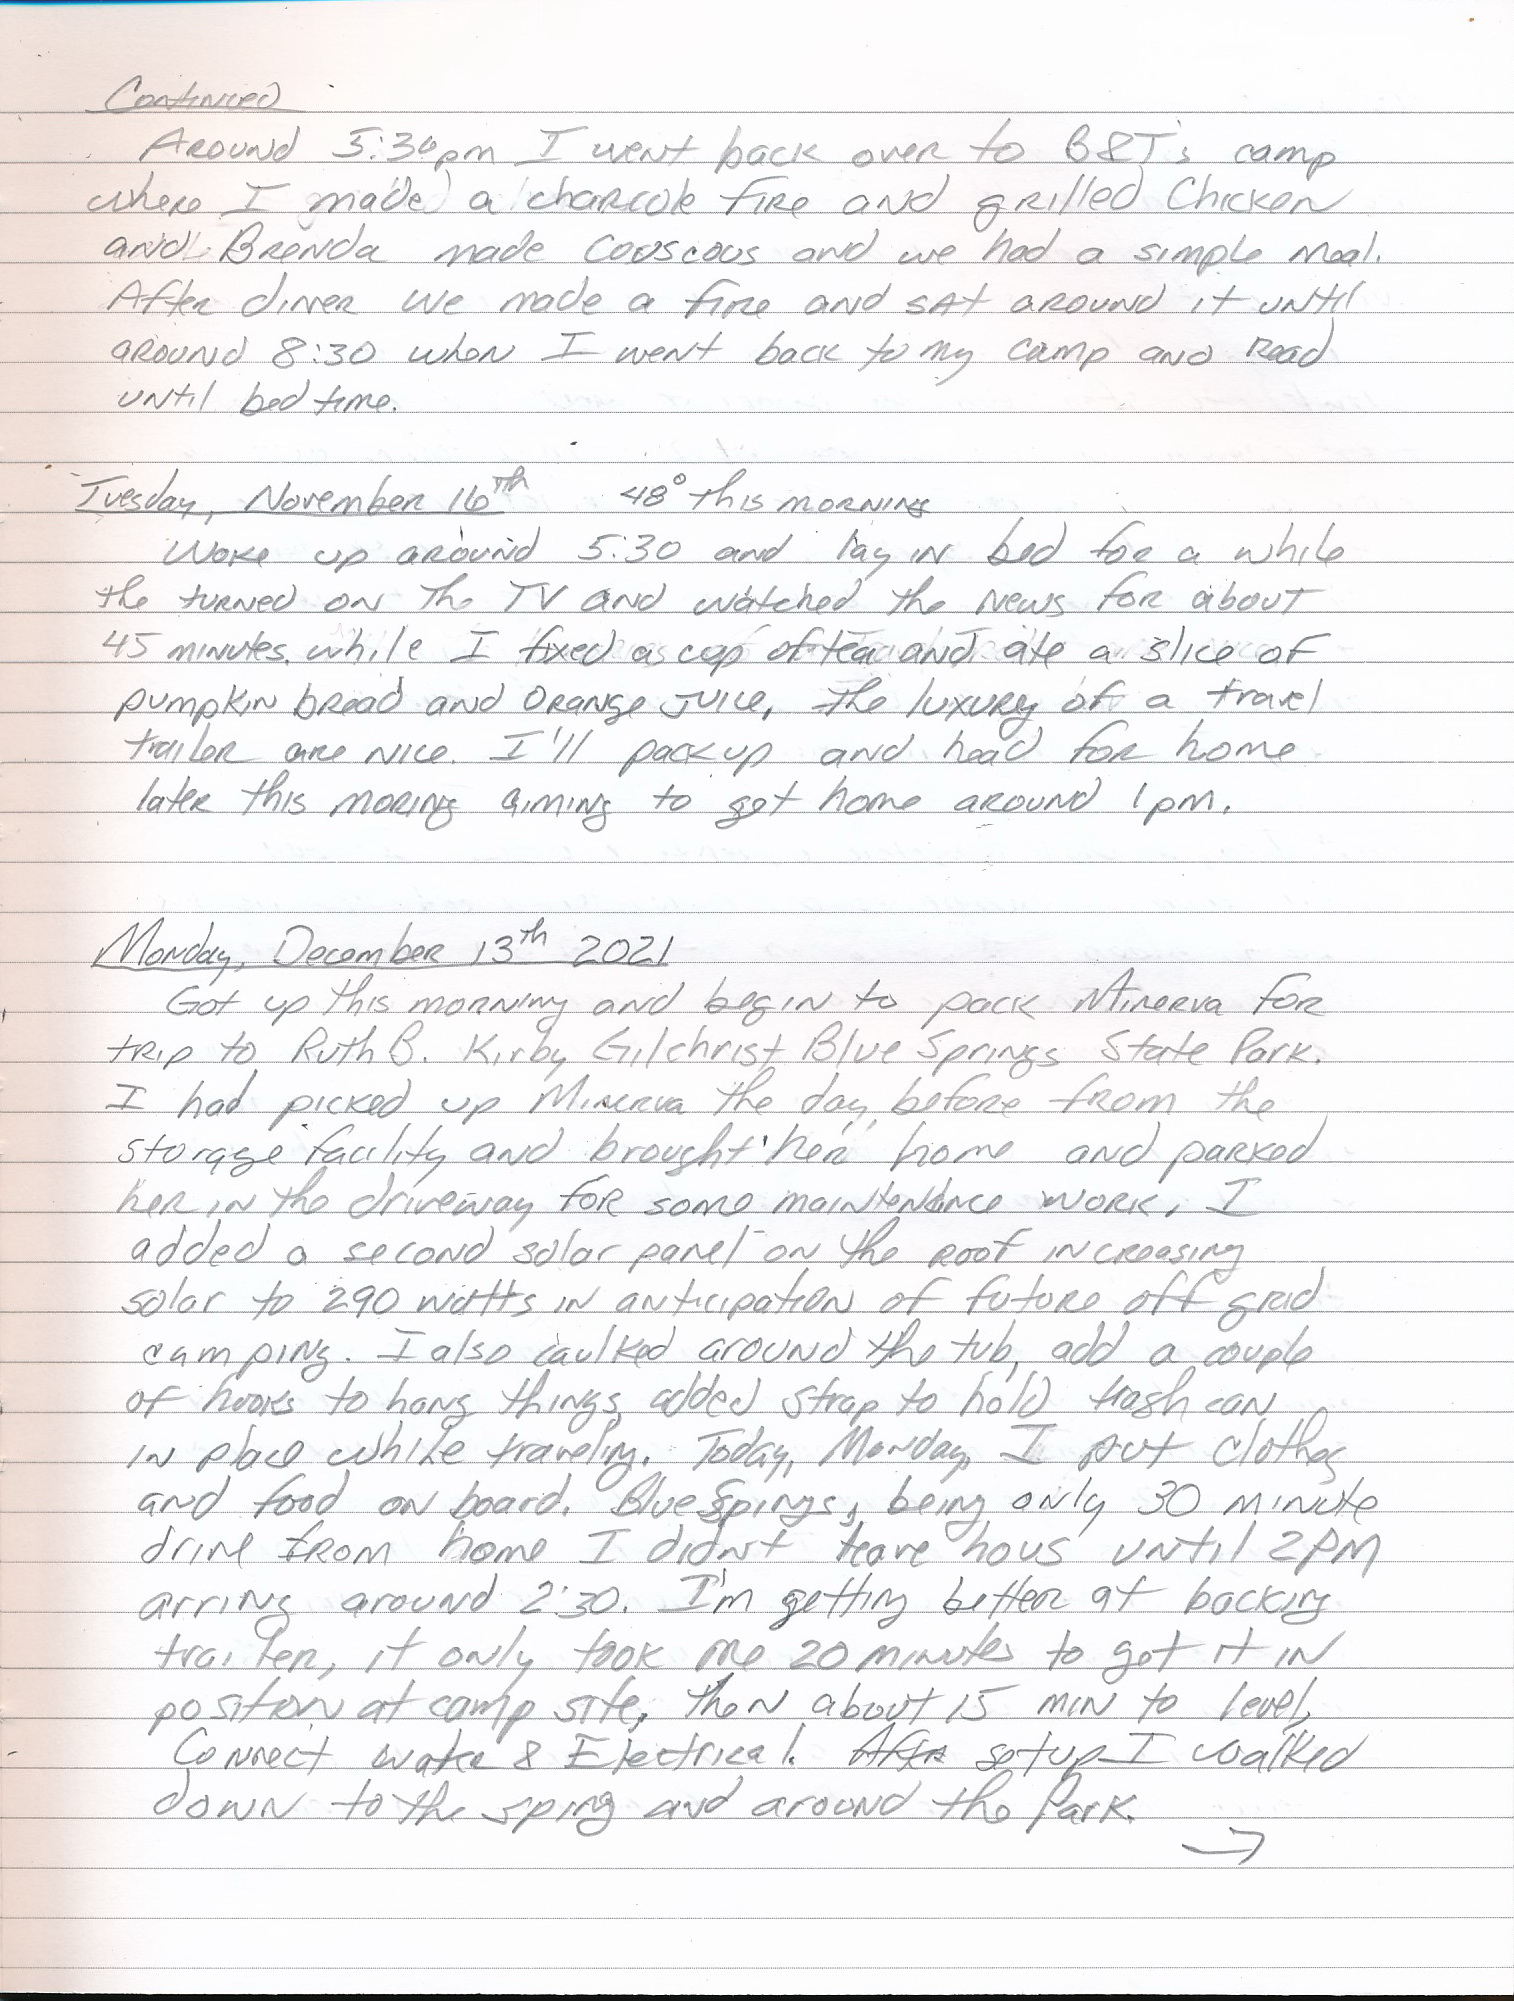 Continued
Around 5:30pm I went back over to B&T's camp
where I made a charcole fire and grilled Chicken
and Brenda made Couscous and we had a simple meal.
After diner we made a fire and sat around it until
around 8:30 when I went back to my camp and read
until bed time.
Tuesday, November 16th 48° this morning
Woke up around 5:30 and lay in bed for a while
the turned on the TV and watched the News for about
45 minutes. while I fixed a cup of tea and ate a slice of
pumpkin bread and Orange Juice, the luxury of a travel
trailer are nice. I'll pack up and head for home
later this moring aiming to get home around 1pm.
Monday, December 13th 2021
Got up this morning and begin to pack Minerva for
trip to Ruth B. Kirby Gilchrist Blue Springs State Park.
I had picked up Minerva the day before from the
storage facility and brought her home and parked
her in the driveway for some maintendince work. I
added a second solar panel on the roof increasing
solar to 290 watts in anticipation of future off grid
camping. I also caulked around the tub, add a couple
of hooks to hang things, added strap to hold trash can
in place while traveling. Today, Monday, I put clothes
and food on board. Blue Spings, being only 30 minute
drive from home I didn't leave hous until 2PM
arring around 2:30. I'm getting better at backing
trailer, it only took me 20 minutes to get it in
position at camp site, then about 15 min to level,
Connect water & Electrical. After setup I walked
down to the sping and around the Park.
→